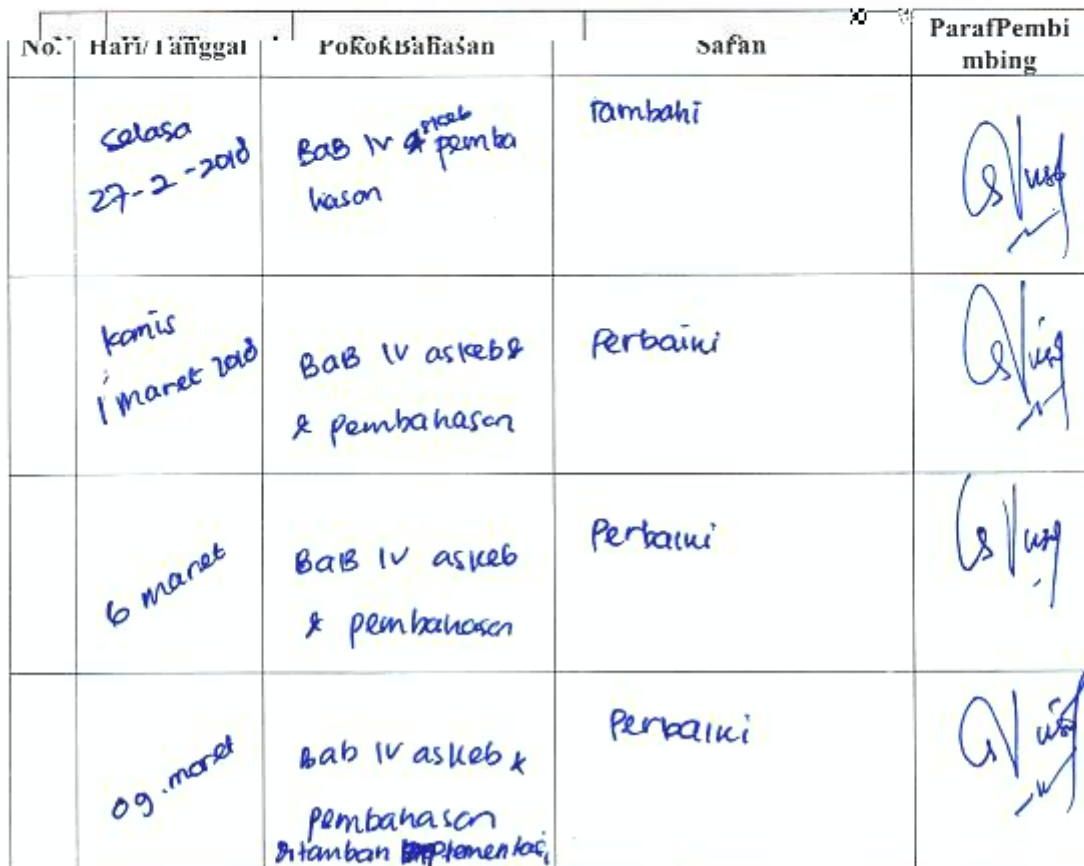 No. Hari/Tanggal PokokBahasan Saran ParafPembi
mbing
Selasa
27-2-2018
BaB IV askeb & pemba
hasan
Tambahi
Kamis
1 maret 2018
BaB IV askeb &
& pembahasan
Perbaiki
6 maret
BaB IV askeb
& pembahasan
Perbaiki
09. maret
Bab IV askeb &
pembahasan
ditambah implementasi
Perbaiki